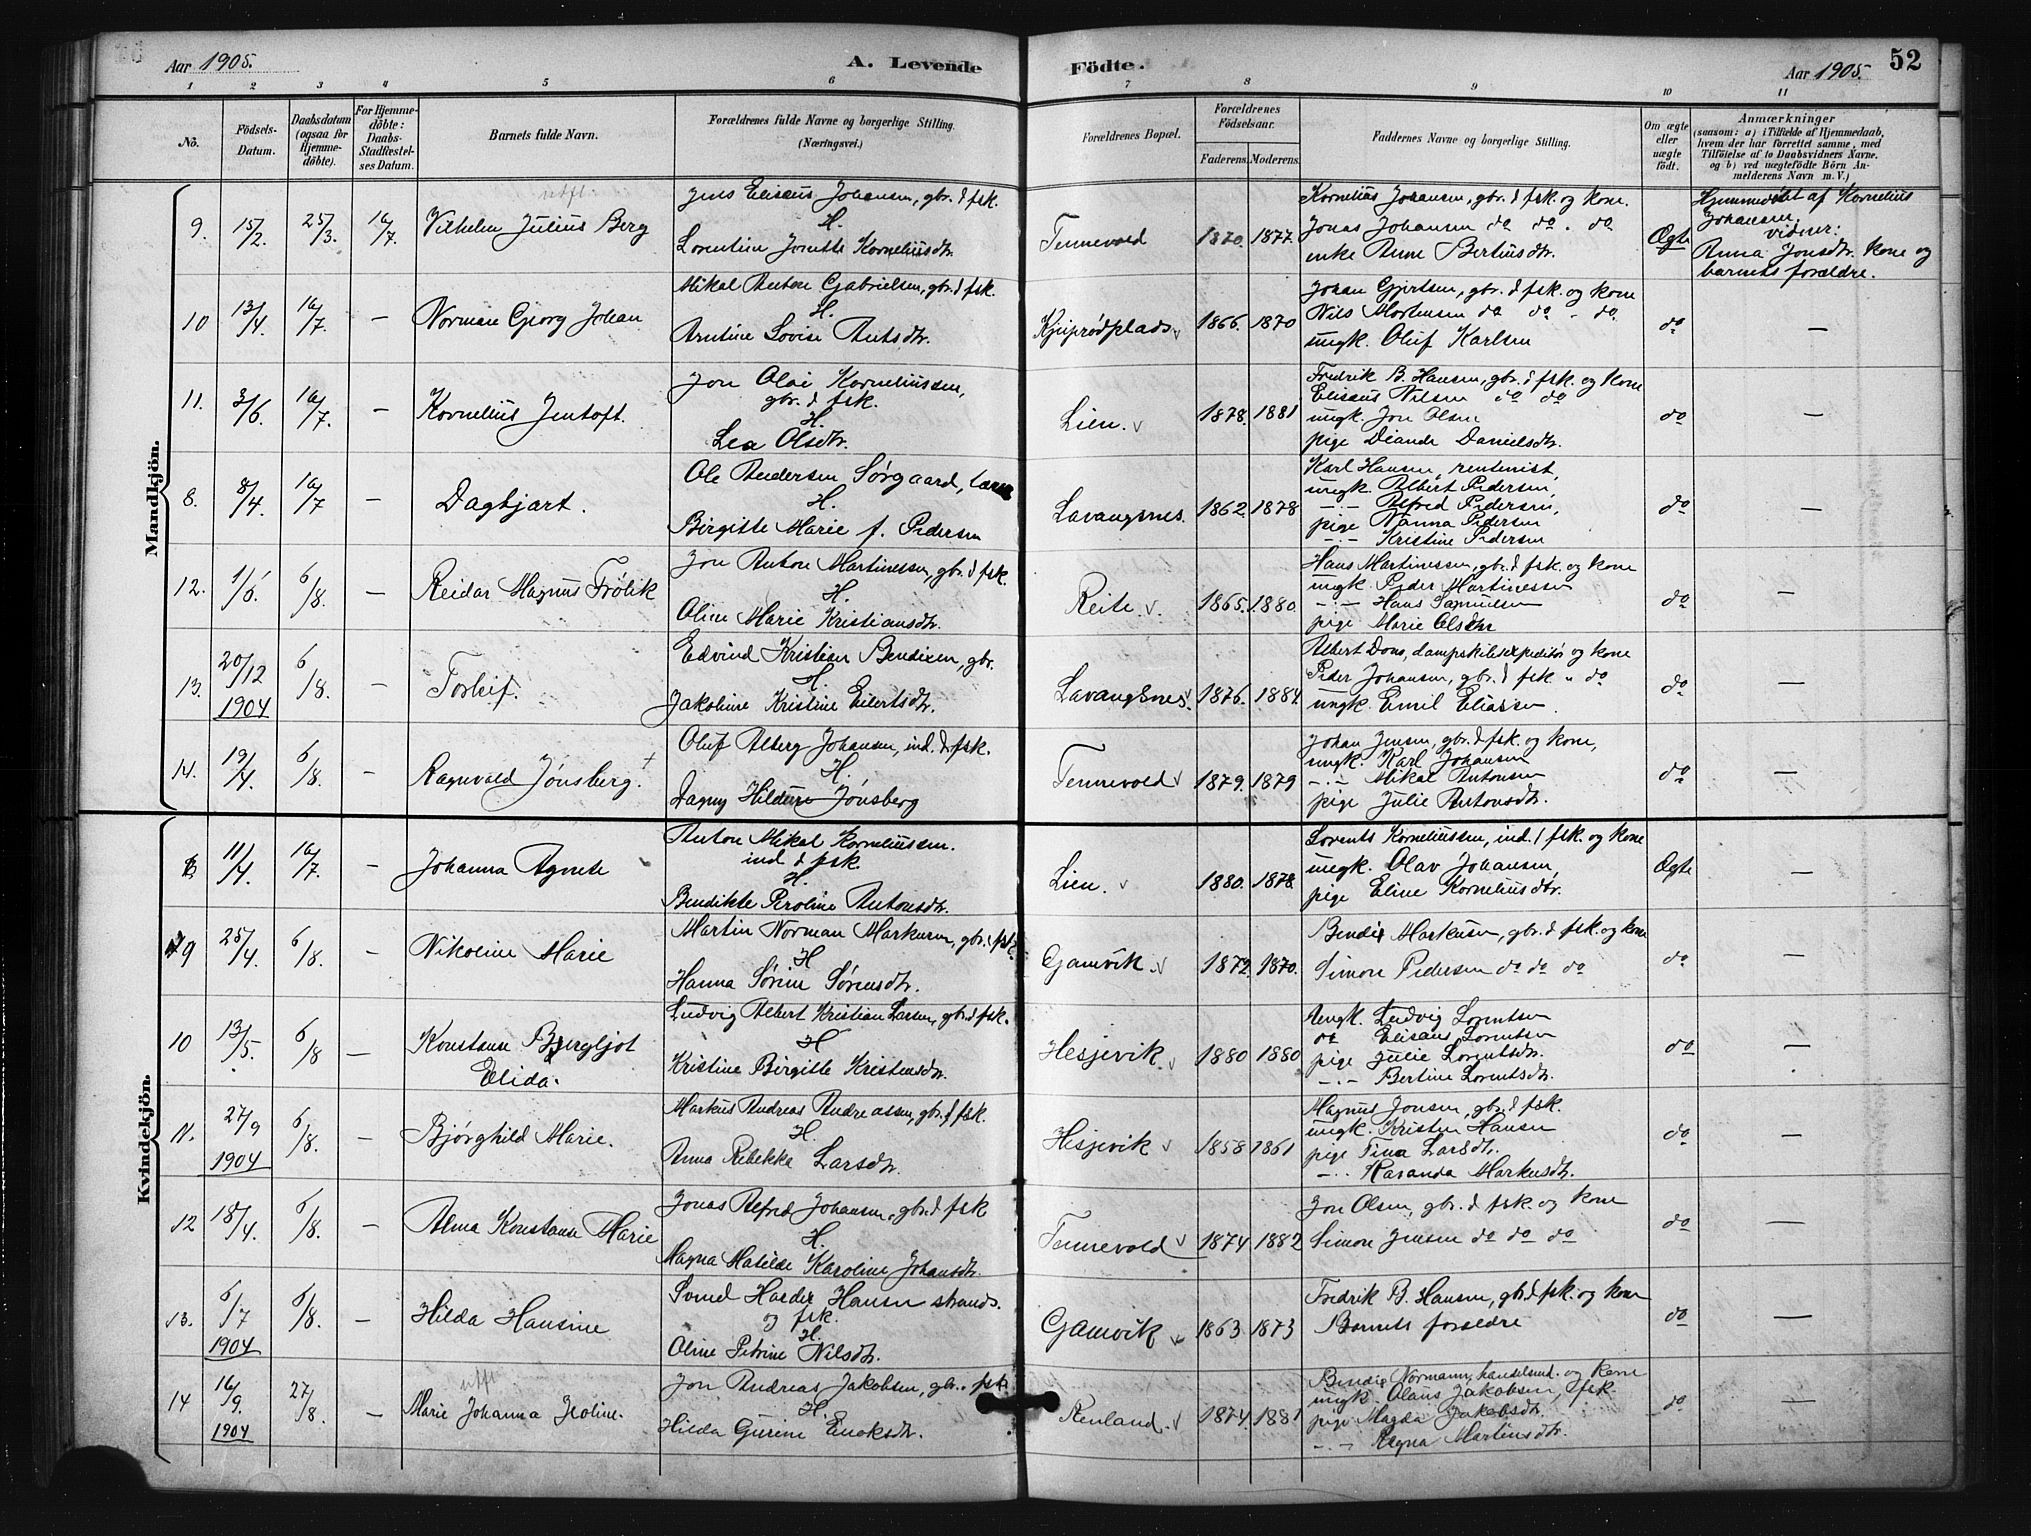 Aar 1905.
A. Levende Födte.
Aar 1905.
52
1 2 3 4 5 6 7 8 9 10 11
No.
Födsels-Datum.
Daabsdatum (ogsaa for Hjemme-döbte).
For Hjemme-döbte: Daabs-Stadfæstel-ses Datum.
Barnets fulde Navn.
Forældrenes fulde Navne og borgerlige Stilling. (Næringsvei.)
Forældrenes Bopæl.
Forældrenes Födselsaar.
Faderens. Moderens.
Faddernes Navne og borgerlige Stilling.
Om ægte eller uægte födt.
Anmærkninger
(saasom: a) i Tilfælde af Hjemmedaab, hvem der har forrettet samme, med Tilföielse af to Daabsvidners Navne, og b) ved uægtefödte Börn An-melderens Navn m. V.)
Mandkjön.
9. 15/2. 25/3. 16/7. utfl. Vilhelm Julius Berg
Jens Elisæus Johansen, gbr. & fsk.
H.
Lorentine Jonette Korneliusdtr.
Tennevold 1870. 1877.
Kornelius Johansen, gbr. & fsk. og kone.
Jonas Johansen do do. do
enke Anne Bertiusdtr.
Ægte
Hjemmedøbt af Kornelius
Johansen.
vidner:
Anna Jonsdtr. kone og
barnets forældre.
10 13/4. 16/7. — Norman Georg Johan
Mikal Anton Gabrielsen, gbr. & fsk.
H.
Arntine Lovise Antsdtr.
1866. 1870
Johan Gjertsen, gbr. & fsk. og kone
Nils Mortensen do do - do
ungk. Oluf Karlsen
do —
11. 3/6. 16/7. — Kornelius Jentoft.
Jon Olai Korneliussen,
gbr. & fsk.
H.
Lea Olsdtr.
Lien. v 1878. 1881
Fredrik B. Hansen, gbr. & fsk. og kone
Elisæus Nilsen do do
ungk. Jon Olsen
pige Diande Danielsdtr.
do —
8. 8/4. 16/7 — Dagbjart.
Ole Andersen Sørgaard, lærer
H.
Birgitte Marie f. Pedersen
Lavangsnes. 1862. 1878
Karl Hansen, rentenist,
ungk. Albert Pedersen,
—·— Alfred Pedersen,
pige Nanna Pedersen
—·— Kristine Pedersen
do —
12. 1/6. 6/8. — Reidar Magnus Frølik
Jon Anton Martinessen, gbr. & fsk.
H.
Oline Marie Kristiansdtr.
Reite. v. 1865. 1880.
Hans Martinessen, gbr. & fsk. og kone
ungk. Peder Martinessen
—·— Hans Samuelsen
pige Marie Olsdtr
do —
13. 20/12 1904 6/8. — Torleif.
Edvind Kristian Bendixen, gbr.
H.
Jakobine Kristine Eilertsdtr.
Lavangsnes v. 1876. 1884.
Albert Dons, dampskibsexpeditør og kone
Peder Johansen, gbr. & fsk " do
ungk. Emil Eliassen.
do —
14. 19/4. 6/8. — Ragnvald Jønsberg. +
Oluf Alberg Johansen, ind. & fsk.
H.
Dagny Hildur Jønsberg
Tennevold v 1879. 1879
Johan Jensen, gbr. & fsk. og kone,
ungk. Karl Johansen
—·— Mikal Antonsen
pige Julie Antonsdtr.
do —
Kvindekjön.
8 11/4. 16/7. — Johanna Agnete
Anton Mikal Korneliussen.
ind. & fsk.
H.
Bendikte Peroline Antonsdtr.
Lien. v 1880. 1878.
Lorents Korneliussen, ind. & fsk. og kone
ungk. Olav Johansen,
pige Eline Korneliusdtr.
Ægte —
9 25/4. 6/8. — Nikoline Marie
Martin Norman Markusen, gbr. & fsk.
H
Hanna Sørine Sørensdtr.
Gamvik. v 1872. 1870.
Bendix Markusen, gbr. & fsk. og kone
Simon Pedersen do do do
do —
10 13/5. 6/8 — Konstanse Bergljot
Elida.
Ludvig Albert Kristian Larsen, gbr. & fsk.
H
Kristine Birgitte Kristensdtr.
Hesjevik v 1880 1880
Ungk. Ludvig Lorentsen
do Elisæus Lorentsen
pige Julie Lorentsdtr.
—·— Bertine Lorentsdtr.
do —
11. 27/9 1904 6/8. — Bjørghild Marie.
Markus Andreas Andreassen, gbr. & fsk.
H.
Anna Rebekka Larsdtr.
Hesjevik v 1858 1861
Magnus Jonsen, gbr. & fsk.
ungk. Kristen Hansen
pige Tina Larsdtr.
—·— Raranda Markusdtr.
do —
12 18/4. 6/8. — Alma Konstanse Marie
Jonas Alfred Johansen, gbr. & fsk
H.
Magna Matilde Karoline Johansdtr.
Tennevold v 1874 1882
Jon Olsen, gbr. & fsk. og kone
Simon Jensen do do do
do —
13. 6/7 1904 6/8. — Hilda Hansine
Svend Harder Hansen strands.
og fsk.
H.
Oline Petrine Nilsdtr.
Gamvik v 1863 1873
Fredrik B. Hansen, gbr. & fsk. og kone
Barnets forældre
do —
14 16/9. 1904 27/8. — utfl Marie Johanna Jeoline.
Jon Andreas Jakobsen, gbr. " fsk
H.
Hilda Gurine Enoksdtr.
Renland. v 1874. 1881
Bendix Normann, handelsmd. og kone
ungk. Olaus Jakobsen, fsk.
pige Magda Jakobsdtr.
—·— Ragna Martinsdtr.
do —